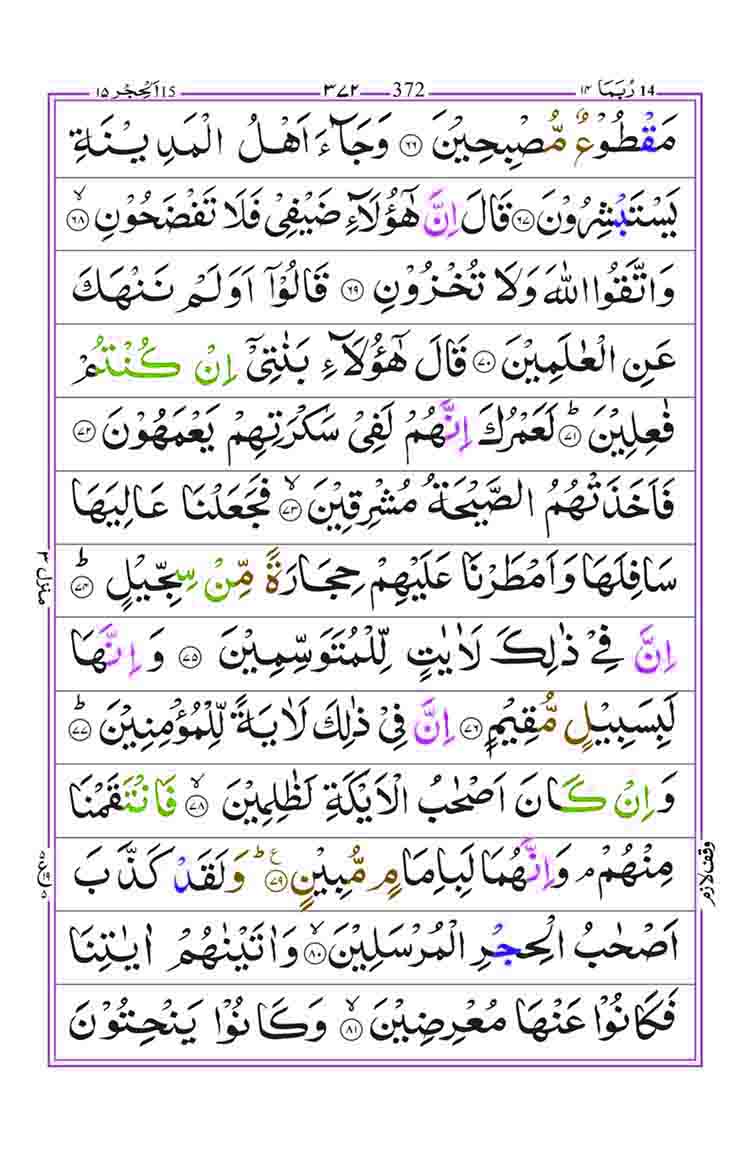 رُبَمَا ١٤ 14 372 ٣٧٢ 15 اَلْحِجْر ١٥
مَقْطُوْعٌ مُّصْبِحِيْنَ ﴿٦٦﴾ وَجَآءَ اَهْلُ الْمَدِيْنَةِ
يَسْتَبْشِرُوْنَ ﴿٦٧﴾ قَالَ اِنَّ هٰٓؤُلَآءِ ضَيْفِيْ فَلَا تَفْضَحُوْنِ ﴿٦٨﴾ۙ
وَاتَّقُوا اللّٰهَ وَلَا تُخْزُوْنِ ﴿٦٩﴾ قَالُوْٓا اَوَلَمْ نَنْهَكَ
عَنِ الْعٰلَمِيْنَ ﴿٧٠﴾ قَالَ هٰٓؤُلَآءِ بَنٰتِيْٓ اِنْ كُنْتُمْ
فٰعِلِيْنَ ﴿٧١﴾ؕ لَعَمْرُكَ اِنَّهُمْ لَفِيْ سَكْرَتِهِمْ يَعْمَهُوْنَ ﴿٧٢﴾
فَاَخَذَتْهُمُ الصَّيْحَةُ مُشْرِقِيْنَ ﴿٧٣﴾ۙ فَجَعَلْنَا عَالِيَهَا
سَافِلَهَا وَاَمْطَرْنَا عَلَيْهِمْ حِجَارَةً مِّنْ سِجِّيْلٍ ﴿٧٤﴾ؕ
منزل ٣
اِنَّ فِيْ ذٰلِكَ لَاٰيٰتٍ لِّلْمُتَوَسِّمِيْنَ ﴿٧٥﴾ وَاِنَّهَا
لَبِسَبِيْلٍ مُّقِيْمٍ ﴿٧٦﴾ اِنَّ فِيْ ذٰلِكَ لَاٰيَةً لِّلْمُؤْمِنِيْنَ ﴿٧٧﴾ؕ
وَاِنْ كَانَ اَصْحٰبُ الْاَيْكَةِ لَظٰلِمِيْنَ ﴿٧٨﴾ۙ فَانْتَقَمْنَا
مِنْهُمْ ۘ وَاِنَّهُمَا لَبِاِمَامٍ مُّبِيْنٍ ﴿٧٩﴾ؕ ع وَلَقَدْ كَذَّبَ
وقف لازم
اَصْحٰبُ الْحِجْرِ الْمُرْسَلِيْنَ ﴿٨٠﴾ۙ وَاٰتَيْنٰهُمْ اٰيٰتِنَا
فَكَانُوْا عَنْهَا مُعْرِضِيْنَ ﴿٨١﴾ۙ وَكَانُوْا يَنْحِتُوْنَ